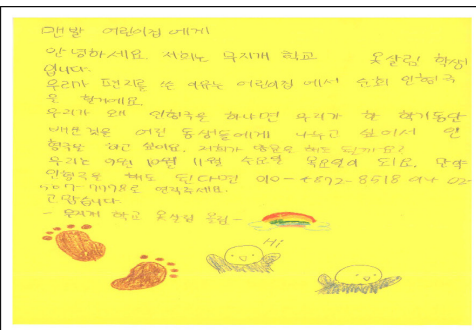 맨발 어린이집 에게
안녕하세요. 저희는 무지개 학교 옷살림 학생
입니다.
우리가 편지를 쓴 이유는 어린이집 에서 순회 인형극
을 할거에요.
우리가 왜 인형극을 하냐면 우리가 한 학기동안
배운 것을 어린 동생들에게 나누고 싶어서 인
형극을 하고 싶어요. 저희가 공연을 해도 될까요?
우리는 9월 10월 11월 수요일 목요일에 되요. 만약
인형극을 해도 된다면 010-4892-8518 이나 02-
507-7778로 연락주세요.
고맙습니다
- 무지개 학교 옷살림 올림 -
Hi